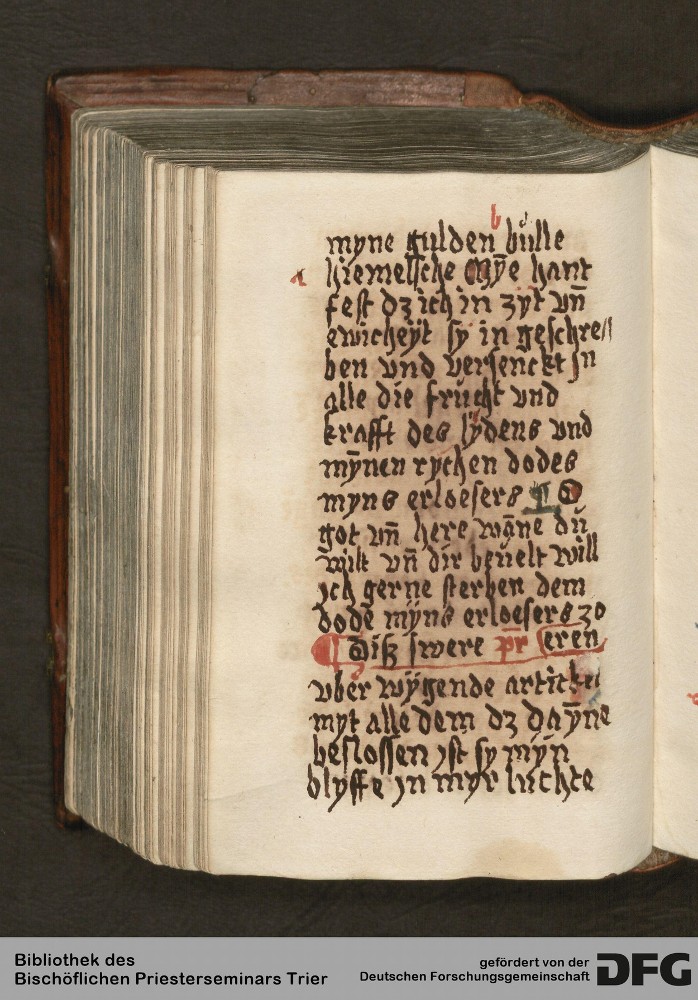 b
myne gulden bulle
a hiemelsche Mȳe hant
fest dz ich in zyt vn̄
ewicheÿt sy in geschre//
ben vnd versenckt jn
alle die frucht vnd
krafft des lÿdens vnd
mȳnen rychen dodes
myns erloesers ¶ O
got vn̄ here wāne du
wilt vn̄ dir beuelt will
ich gerne sterben dem
dode mÿns erloesers zo
¶ Disz swere pr̄ eren
vber wÿgende artickel
myt alle dem dz daȳne
beslossen ist sy mȳn
blyffe jn myr luchte
Bibliothek des
Bischöflichen Priesterseminars Trier
gefördert von der
Deutschen Forschungsgemeinschaft
DFG